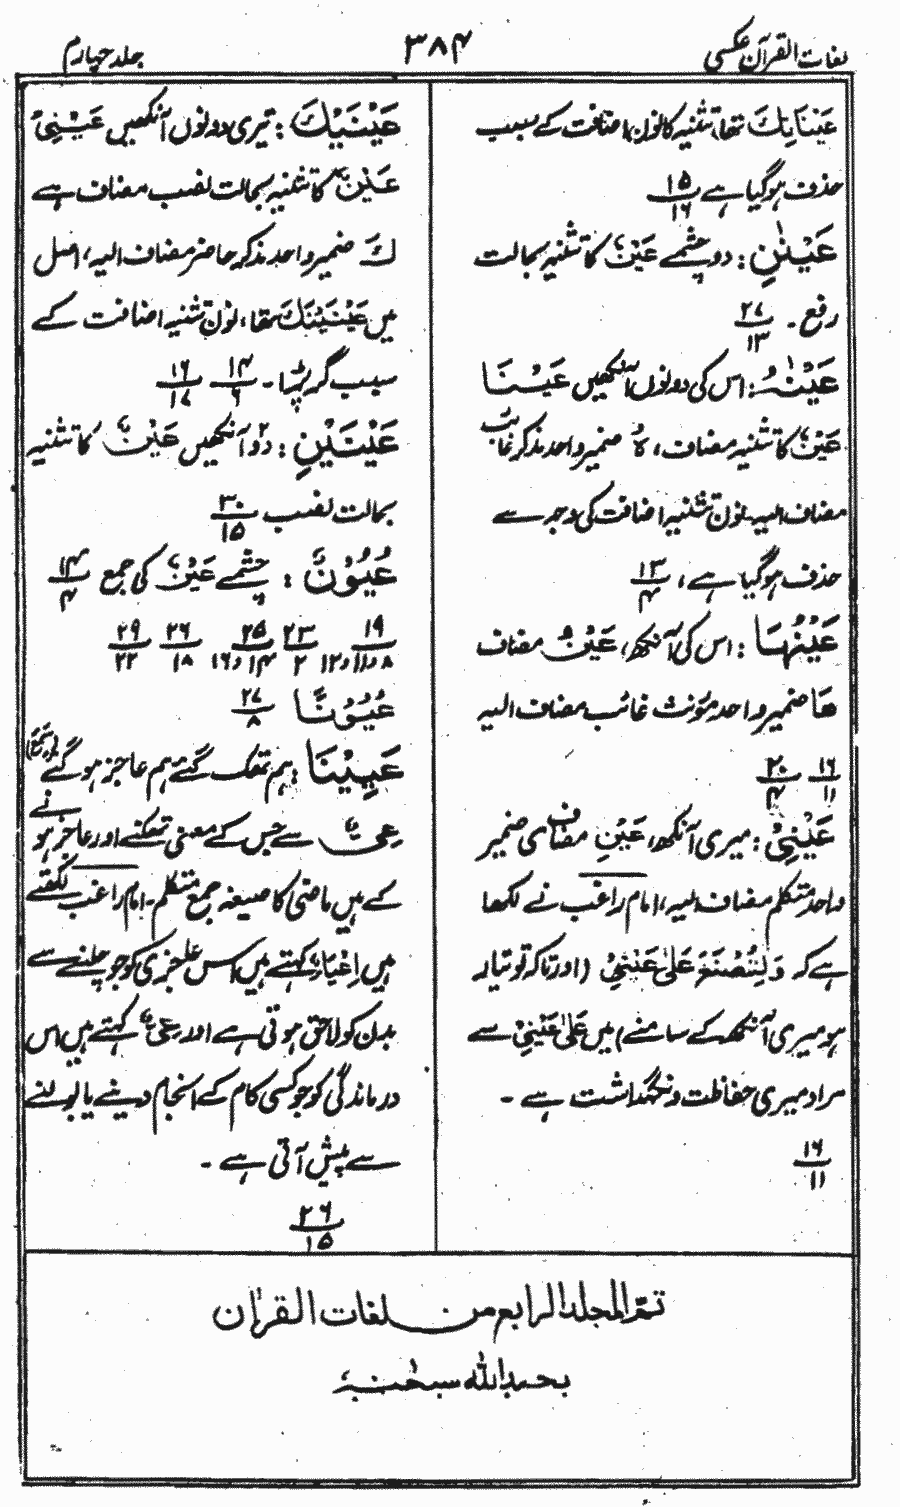 لغات القرآن عکسی
۳۸۴
جلد چہارم
عَیْنَایَكَ تھا، تثنیہ کا نون اضافت کے سبب
حذف ہو گیا ہے ۱۵/۱۶
عَیْنٰنِ : دو چشمے عَیْنٌ کا تثنیہ بحالت
رفع - ۲۷/۱۳
عَیْنٰہُ : اس کی دونوں آنکھیں عَیْنَا
عَیْنٌ کا تثنیہ مضاف، ہُ ضمیر واحد مذکر غائب
مضاف الیہ - نون تثنیہ اضافت کی وجہ سے
حذف ہو گیا ہے، ۱۳/۴
عَیْنُہَا : اس کی آنکھ، عَیْنُ مضاف
ھَا ضمیر واحد مؤنث غائب مضاف الیہ
۱۶/۱۱ ۲۰/۴
عَیْنِیْ : میری آنکھ، عَیْنِ مضاف ی ضمیر
واحد متکلم مضاف الیہ، امام راغب نے لکھا
ہے کہ وَلِتُصْنَعَ عَلٰی عَیْنِیْ (اور تاکہ تو تیار
ہو میری آنکھ کے سامنے) میں عَلٰی عَیْنِیْ سے
مراد میری حفاظت و نگہداشت ہے -
۱۶/۱۱
عَیْنَیْكَ : تیری دونوں آنکھیں عَیْنَیْ
عَیْنٌ کا تثنیہ بحالت نصب مضاف ہے
كَ ضمیر واحد مذکر حاضر مضاف الیہ، اصل
میں عَیْنَیْنَكَ تھا، نون تثنیہ اضافت کے
سبب گر پڑا - ۱۴/۶ ۱۶/۱۷
عَیْنَیْنِ : دو آنکھیں عَیْنٌ کا تثنیہ
بحالت نصب ۳۰/۱۵
عُیُوْنٌ : چشمے عَیْنٌ کی جمع ۱۴/۴
۱۹/۸ و ۱۱ و ۱۲ ۲۳/۲ ۲۵/۱۴ و ۱۶ ۲۶/۱۸ ۲۹/۲۲
عُیُوْنًا ۲۷/۸
عَیِیْنَا : ہم تھک گئے ہم عاجز ہو گئے
عِیٌّ سے جس کے معنی تھکنے اور عاجز ہونے
کے ہیں ماضی کا صیغہ جمع متکلم - امام راغب لکھتے
ہیں اِعْیَاءٌ کہتے ہیں اس عاجزی کو جو چلنے سے
بدن کو لاحق ہوتی ہے اور عِیٌّ کہتے ہیں اس
درماندگی کو جو کسی کام کے انجام دینے یا بولنے
سے پیش آتی ہے -
۲۶/۱۵
تم المجلد الرابع من لغات القرآن
بحمد اللہ سبحٰنہ